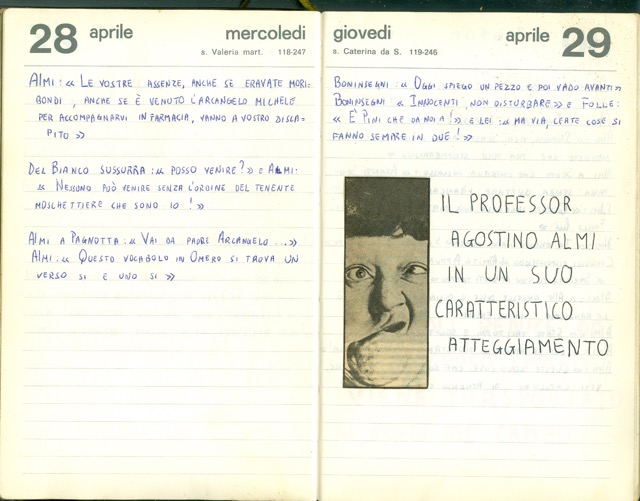 28 aprile mercoledì
s. Valeria mart. 118-247
Almi: « Le vostre assenze, anche se eravate mori-
bondi, anche se è venuto l'Arcangelo Michele
per accompagnarvi in farmacia, vanno a vostro disca-
pito »
Del Bianco sussurra: « Posso venire? » e Almi:
« Nessuno può venire senza l'ordine del tenente
moschettiere che sono io! »
Almi a Pagnotta: « Vai da padre Arcangelo... »
Almi: « Questo vocabolo in Omero si trova un
verso sì e uno sì »
giovedì aprile 29
s. Caterina da S. 119-246
Boninsegni: « Oggi spiego un pezzo e poi vado avanti »
Boninsegni: « Innocenti, non disturbare » e Folle:
« È Pini che dà noia! » e lei: « Ma via, certe cose si
fanno sempre in due! »
IL PROFESSOR
AGOSTINO ALMI
IN UN SUO
CARATTERISTICO
ATTEGGIAMENTO